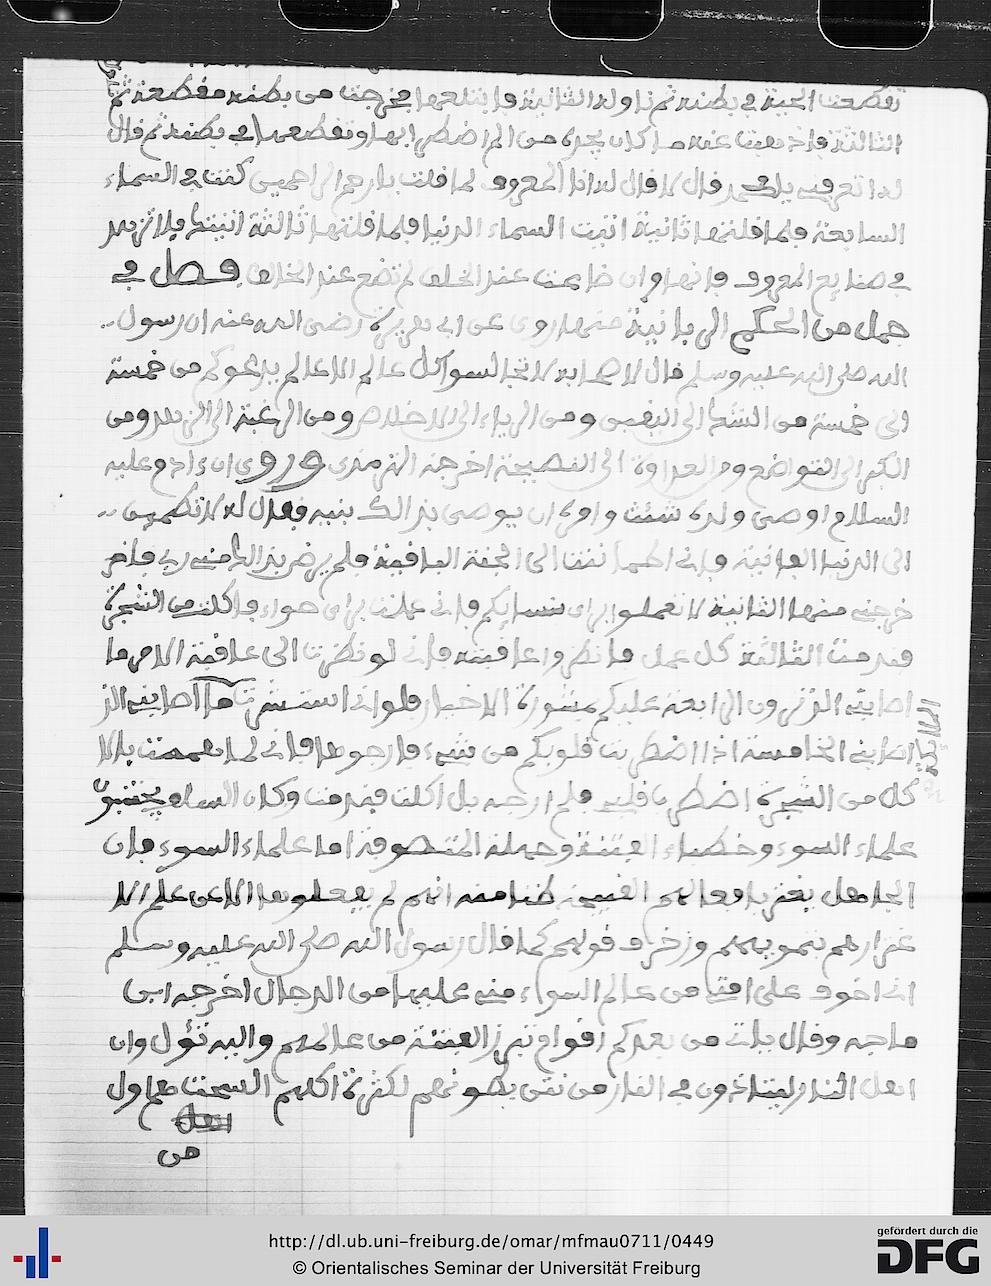 تقطعت الحية في بطنه ثم ناوله الثانية فابتلعها فخرجت من بطنه مقطعة ثم
الثالثة فاذهبت عنه ما كان يجده من الم اضطرابها وتقطعها في بطنه ثم قال
له اتعرفني يا محمد قال لا قال له انا المعروف لما قلت يا ارحم الراحمين كنت في السماء
السابعة فلما قلتها ثانية اتيت السماء الدنيا فلما قلتها ثالثة اتيتك فلا تزهد
في صنايع المعروف فانها وان ضاعت عند الخلق لم تضع عند الخالق فصل في
جمل من الحكم الربانية منها روي عن ابي هريرة رضي الله عنه ان رسول
الله صلى الله عليه وسلم قال لاصحابه لا تجالسوا كل عالم الا عالم يدعوكم من خمسة
الى خمسة من الشك الى اليقين ومن الرياء الى الاخلاص ومن الرغبة الى الزهد ومن
الكبر الى التواضع ومن العداوة الى النصيحة اخرجه الترمذي وروي ان ءادم عليه
السلام اوصى ولده شئت وامره ان يوصي بذالك بنيه فقال له لا تطمين
الى الدنيا الفانية فاني اطمأننت الى الجنة الباقية فلم يرض بذالك مني ربي فاخر
خرجني منها الثانية لا تعملوا براي نسايكم فاني عملت براي حواء فاكلت من الشجرة
فندمت الثالثة كل عمل فانظروا عاقبته فاني لو نظرت الى عاقبة الامر ما
اصابني الذي ترون الرابعة عليكم بمشورة الاخيار فلو اني استشرت ما اصابني الذ
اصابني الخامسة اذا اضطربت قلوبكم من شيء فارجوها فاني لما هممت بالا
الملائكة
كل من الشجرة اضطرب قلبي فلم ارجه بل اكلت فندمت وكان السلف يخشون
علماء السوء وخطباء الفتنة وجهلة المتصوفة اما علماء السوء فان
الجاهل يغتر بافعالهم القبيحة ظنا منه انهم لم يفعلوها الا عن علم الا
غترارهم بتمويههم وزخرف قولهم كما قال رسول الله صلى الله عليه وسلم
اني اخوف على امتي من عالم السوء مني عليها من الدجال اخرجه ابن
ماجه وقال ياتي من بعدكم اقوام تبرز الفتنة من عالمهم واليه تؤل وان
اهل النار ليتاذون في النار من نتن بطونهم لكثرة اكلهم السحت هم اول
من
http://dl.ub.uni-freiburg.de/omar/mfmau0711/0449
© Orientalisches Seminar der Universität Freiburg
gefördert durch die
DFG